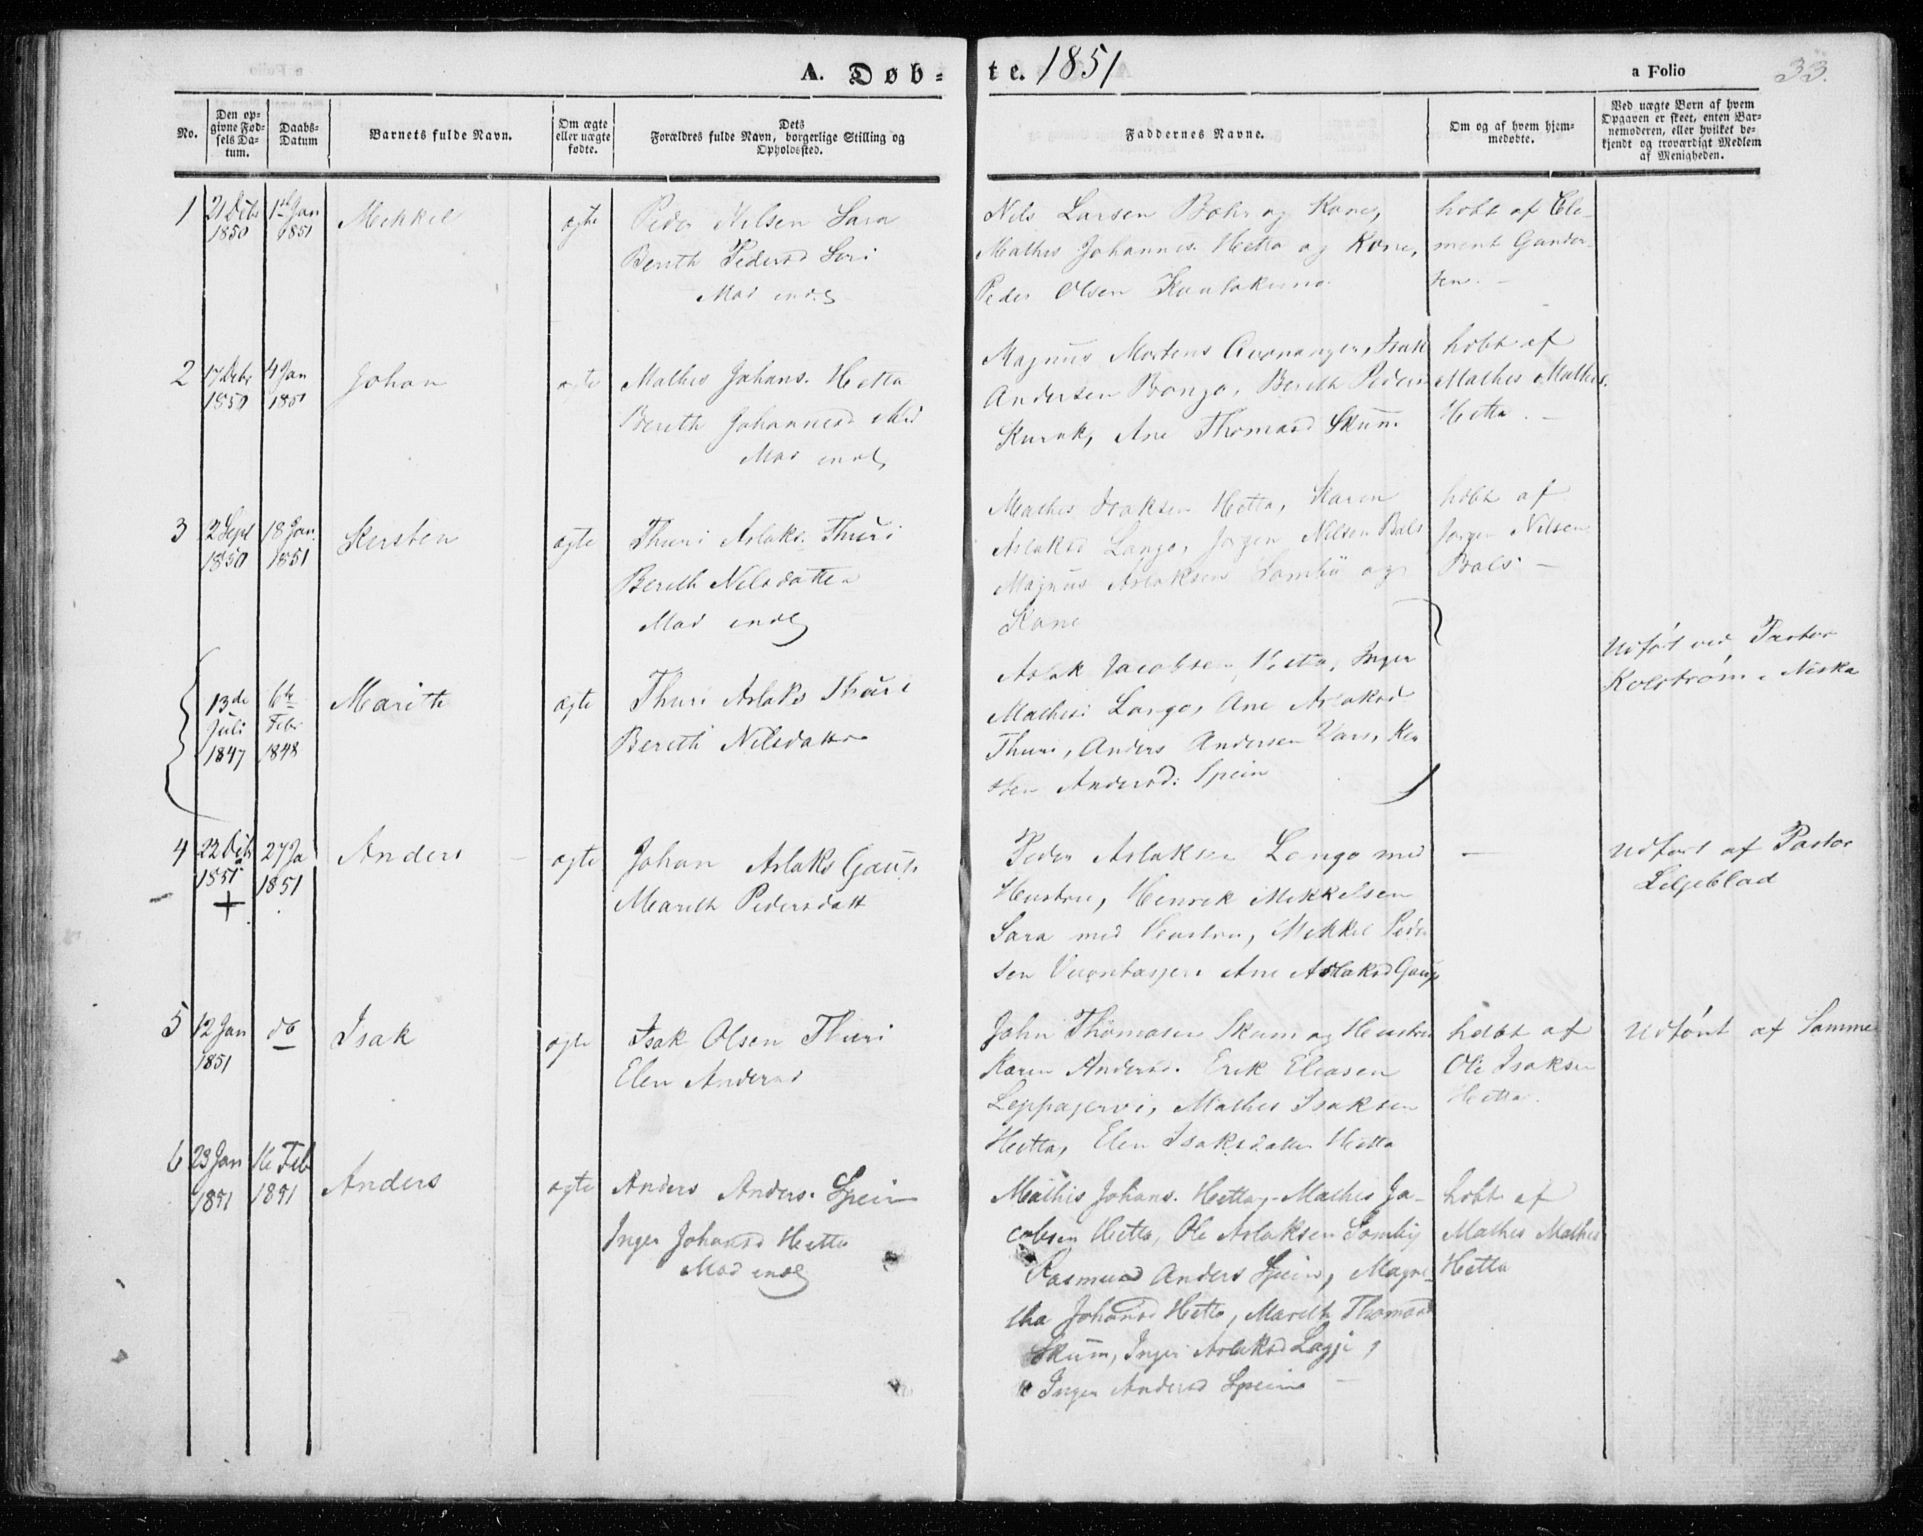 A. Døb-
te. 1851
a Folio 33.
No.
Den op-
givne Fød-
sels Da-
tum.
Daabs-
Datum
Barnets fulde Navn.
Om ægte
eller uægte
fødte.
Dets
Forældres fulde Navn, borgerlige Stilling og
Opholdssted.
Faddernes Navne.
Om og af hvem hjem-
medøbte.
Ved uægte Børn af hvem
Opgaven er skeet, enten Bar-
nemoderen, eller hvilket be-
kjendt og troværdigt Medlem
af Menigheden.
1
21 Decbr
1850
1ste Jan
1851
Mikkel
ægte
Peder Nilsen Sara
Berith Pedersd
Nils Larsen og Kone,
Mathis Johannes. Hetta og Kone,
Peder Olsen Kautokeino
høbt af Cle-
ment Gunder-
sen. -
2
17 Decbr
1850
4 Jan
1851
Johan
ægte
Mathis Johans. Hetta
Berith Johannesd
Magnus Mortens Isak
Andersen Bongo, Berith Peders
Kurak, Ane Thomasd Skum
høbt af
Mathis Mathis.
Hetta. -
3
2 Sept
1850
18 Jan.
1851
Kersten
ægte
Thuri Aslaks. Thuri
Berith Nilsdatter
Mathis Isaksen Hetta, Karen
Aslaksd Lango, Jørgen Nilsen Bals
Magnus Aslaksen Somby og
Kone
høbt af
Jørgen Nilsen
Bals -
13de
Juli
1847
6te
Febr
1848
Marith
ægte
Thuri Aslaks Thuri
Berith Nilsdatter
Aslak Jacobsen Hetta, Inger
Mathis: Lango, Ane Aslaksd
Thuri, Anders Andersen Vars, Ker
sten Andersd: Spein
Udført ved Pastor
Kolstrøm
4
22 Decbr
1851
+
27 Ja
1851
Anders
ægte
Johan Aslaks Gaup
Marith Pedersdatt
Peder Aslaksen Lango med
Hustru, Henrik Mikkelsen
Sara med Hustru, Mikkel Peder
sen Ane Aslaksd Gaup
-
Udført af Pastor
Liljeblad
5
12 Jan
1851
do
Isak
ægte
Isak Olsen Thuri
Elen Andersd
John Thomasen Skum og Hustru
Karen Andersd. Erik Eliasen
Leppajervi, Mathis Isaksen
Hetta, Elen Isaksdatter Hetta
høbt af
Ole Isaksen
Hetta.
Udført af Samme
6
23 Jan
1851
16 Feb
1851
Anders
ægte
Anders Anders. Spein
Inger Johansd Hetta
Mathis Johans. Hetta, Mathis Ja-
cobsen Hetta, Ole Aslaksen Somby
Rasmus Anders Spein, Magre-
tha Johansd Hetta, Marith Thomasd
Skum, Inger Aslaksd
Inger Andersd Spein -
høbt af
Mathis Mathis
Hetta